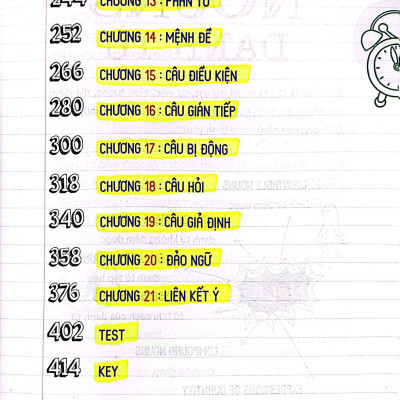 CHƯƠNG 13 : PHÂN TỪ
252 CHƯƠNG 14 : MỆNH ĐỀ
266 CHƯƠNG 15 : CÂU ĐIỀU KIỆN
280 CHƯƠNG 16 : CÂU GIÁN TIẾP
300 CHƯƠNG 17 : CÂU BỊ ĐỘNG
318 CHƯƠNG 18 : CÂU HỎI
340 CHƯƠNG 19 : CÂU GIẢ ĐỊNH
358 CHƯƠNG 20 : ĐẢO NGỮ
376 CHƯƠNG 21 : LIÊN KẾT Ý
402 TEST
414 KEY